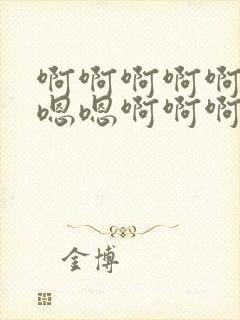 啊啊啊啊啊
嗯嗯啊啊啊
金博